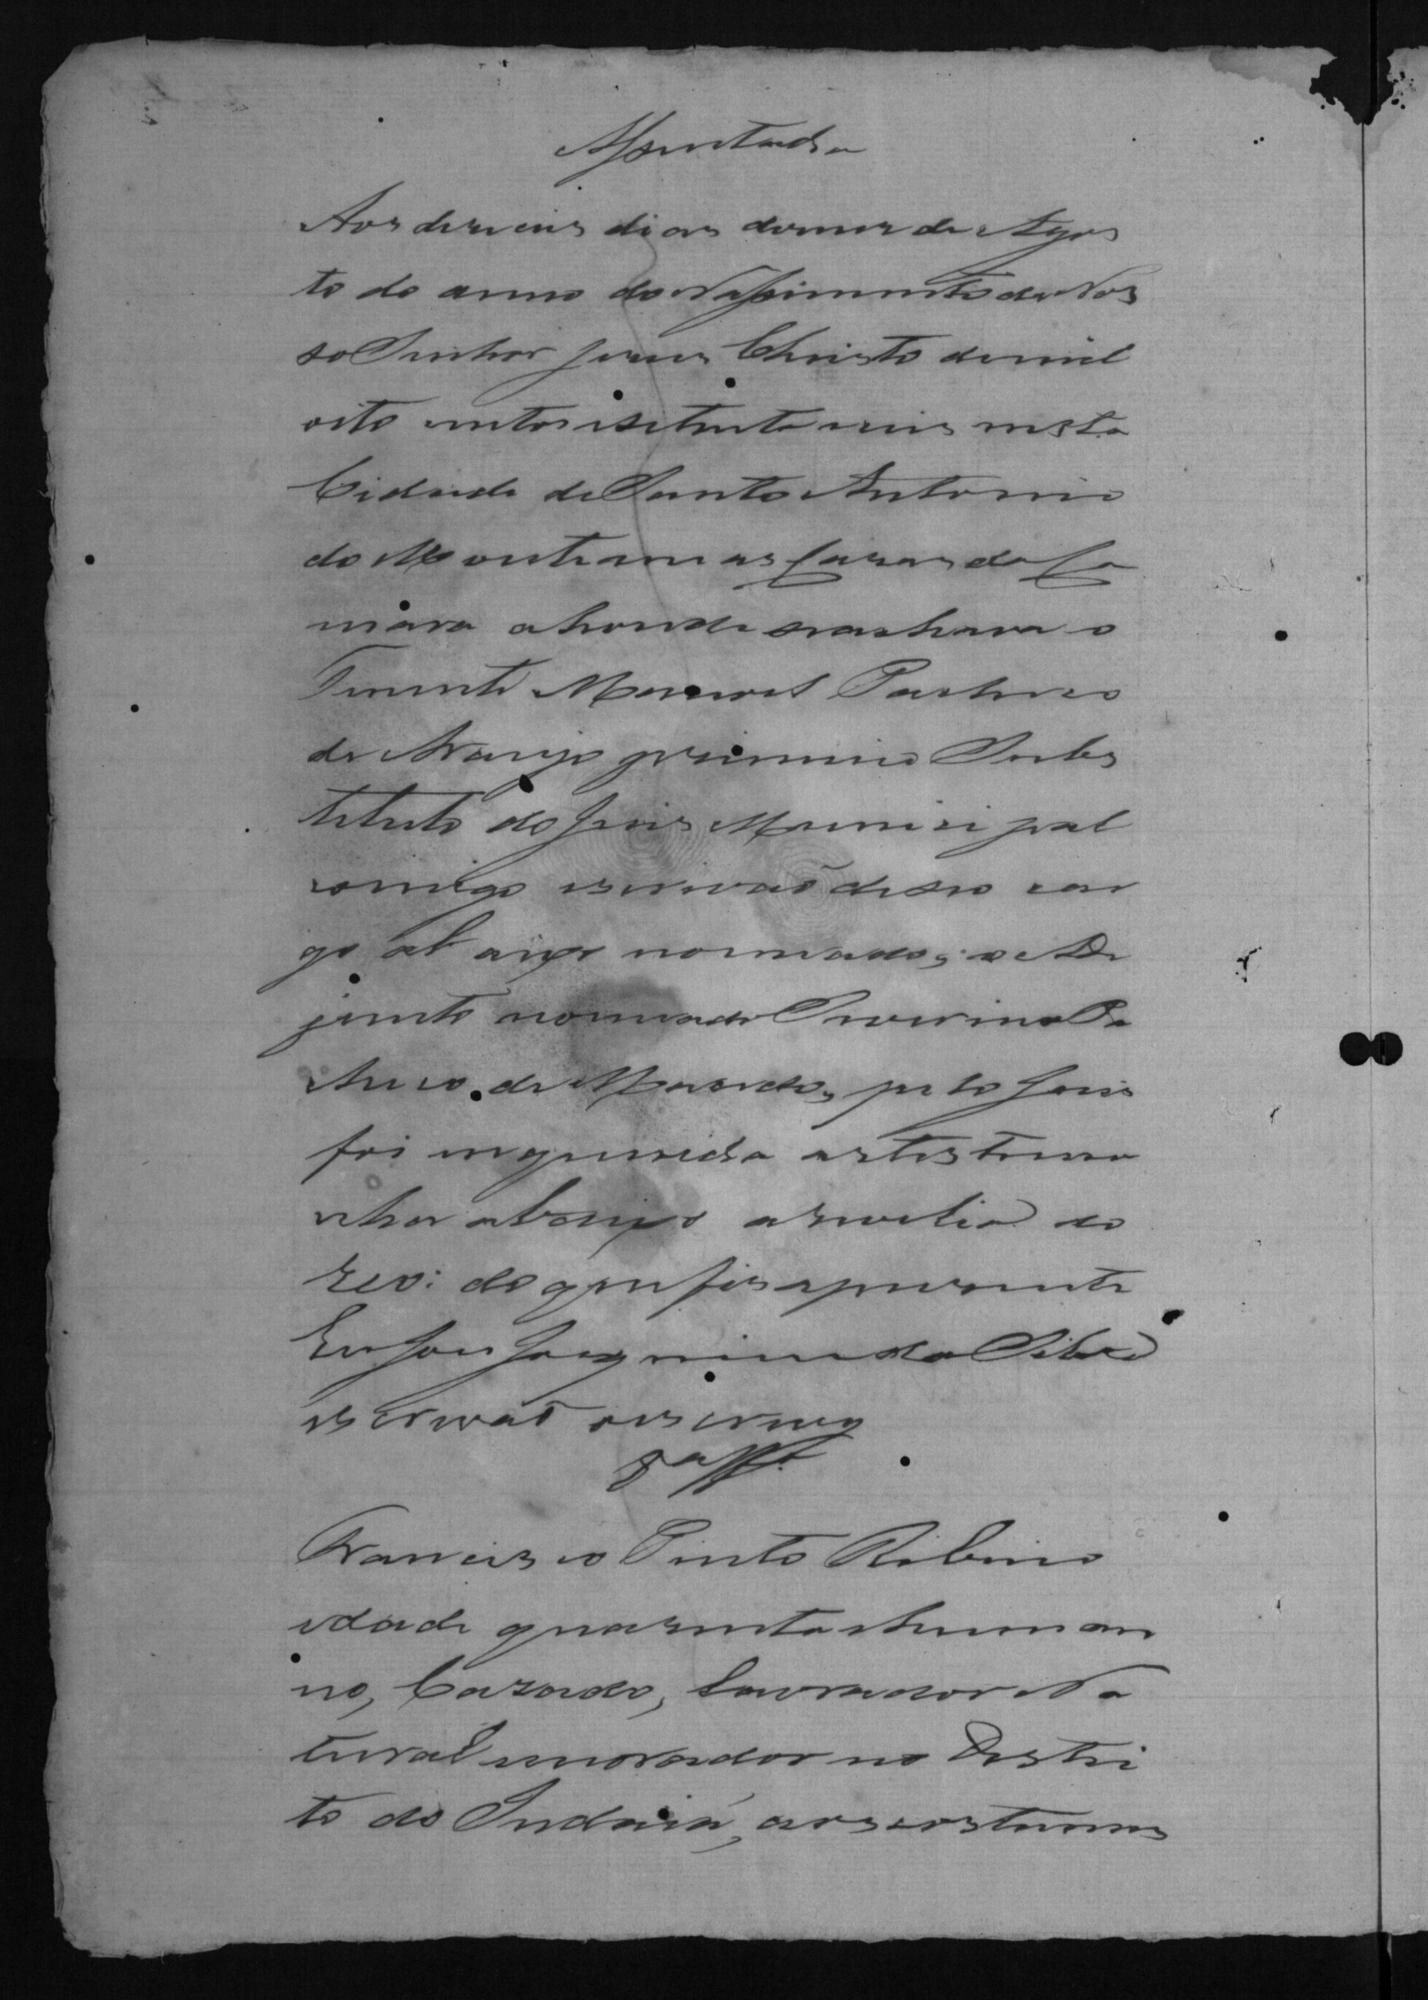 Assentada
Aos deseceis dias domes de Agos
to do anno do Nassimento de Nos
so Senhor Jesus Christo de mil
oito centos esetenta eceis nesta
Cidade de Santo Antonio
do Monte em as Casas da Ca
mara ahonde seachava o
Tenente Manoel Pacheco
de Araujo primeiro Subs
tituto do Juis Municipal
comigo escrivaõ deseo car
go abaixo nomiado, e o Ad
junto nomiado Severino Pa
checo de Macedo, pelo Juis
foi inquerida astestemu
nhas abaixo arevelia do
reo: do que fis apresente
Eu Jose Joaquim da Silva
escrivaõ oescrevy
Francisco Pinto Ribeiro
idade quarenta ehum an
no, Cazado, Lavrador Na
tural morador no Destri
to do Indaiá, aos costumes